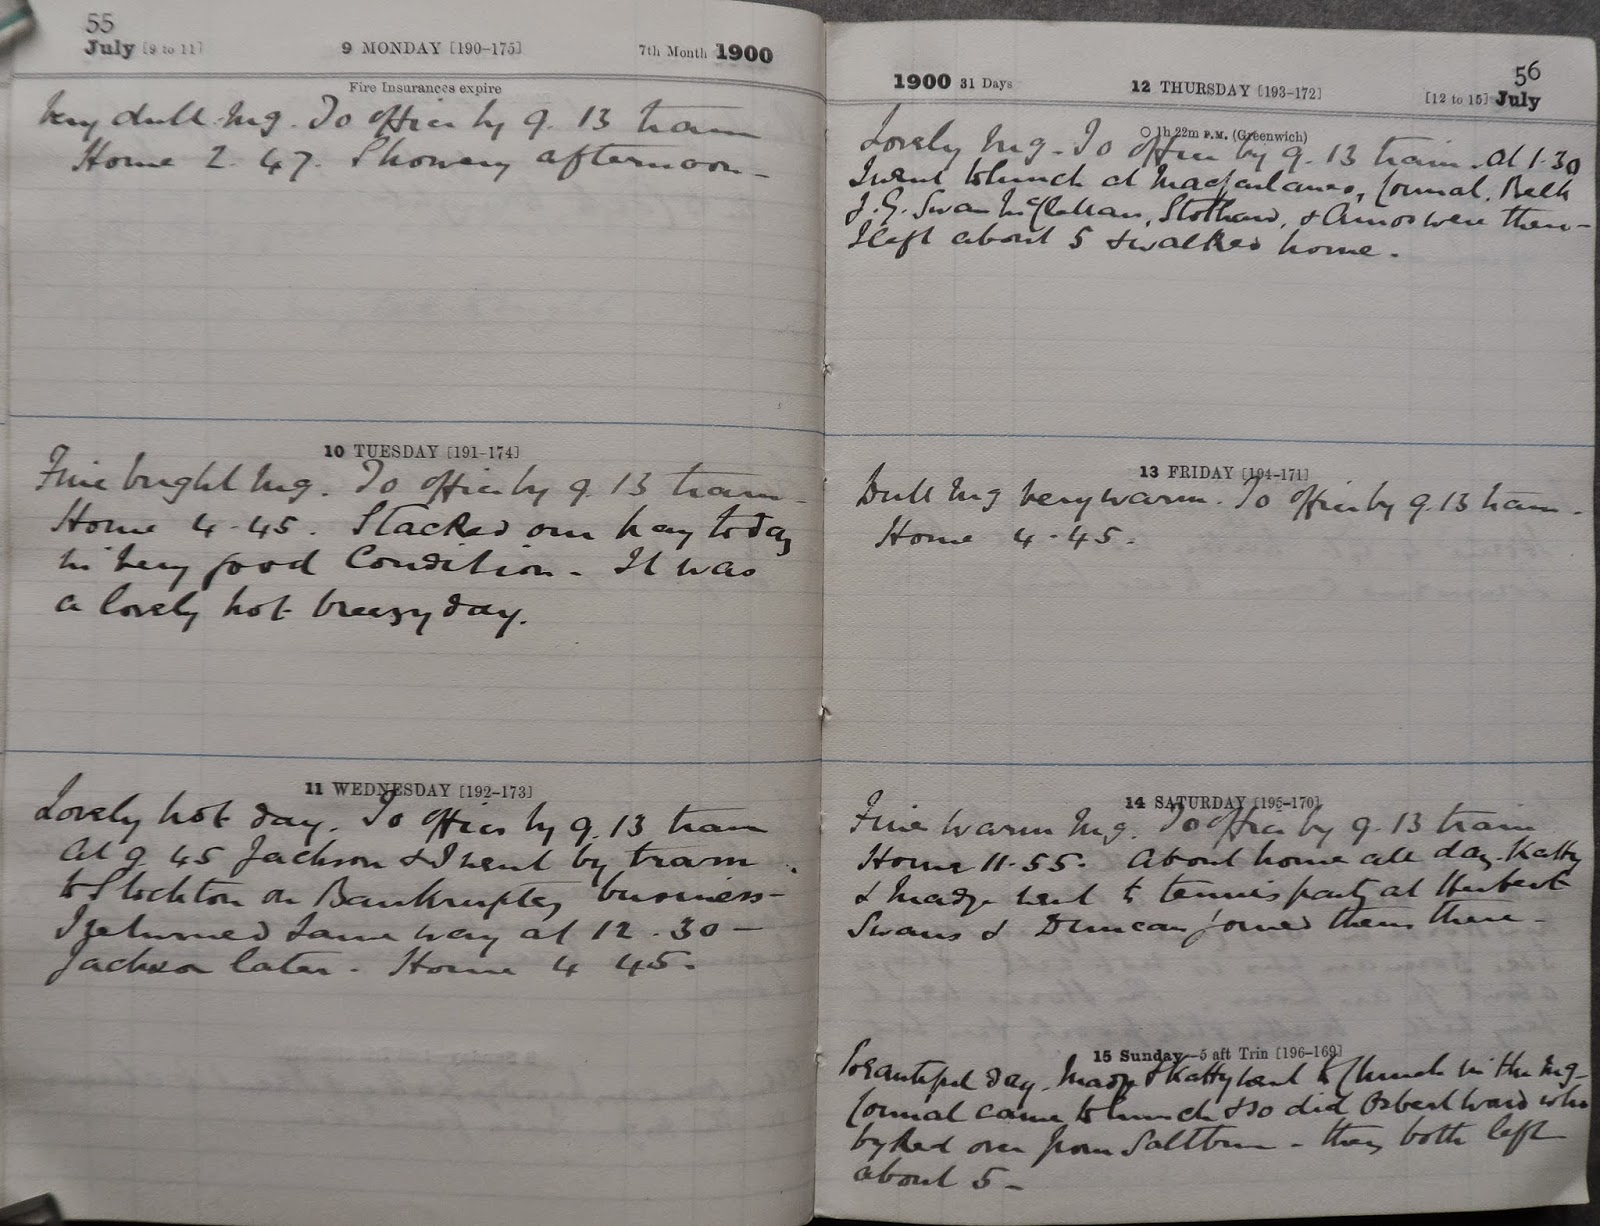 55
July [9 to 11] 9 MONDAY [190-175] 7th Month 1900
Fire Insurances expire
Very dull Mg. To office by 9.13 tram
Home 2.47. Showery afternoon -
10 TUESDAY [191-174]
Fine bright Mg. To office by 9.13 tram -
Home 4-45. Stacked our hay today
in very good Condition - It was
a lovely hot breezy day.
11 WEDNESDAY [192-173]
Lovely hot day. To office by 9.13 tram
At 9 45 Jackson & I went by tram
to Stockton on Bankruptcy business -
I returned same way at 12.30 -
Jackson later - Home 4 45.
56
1900 31 Days 12 THURSDAY [193-172] [12 to 15] July
○ 1h 22m P.M. (Greenwich)
Lovely Mg - To office by 9.13 tram. At 1.30
I went to lunch at Macfarlanes, Cormal, Belk
J.G. Swan McClellan, Stothard, & Amos were there -
I left about 5 & walked home.
13 FRIDAY [194-171]
Dull Mg very warm. To office by 9.13 tram -
Home 4-45.
14 SATURDAY [195-170]
Fine warm Mg. To office by 9.13 tram
Home 11-55. About home all day. Katty
& Madge went to tennis party at Herbert
Swans & Duncan joined them there -
15 Sunday-5 aft Trin [196-169]
Beautiful day. Madge & Katty went to Church in the Mg -
Cormal came to lunch & so did Osbert Ward who
byked over from Saltburn - they both left
about 5 -